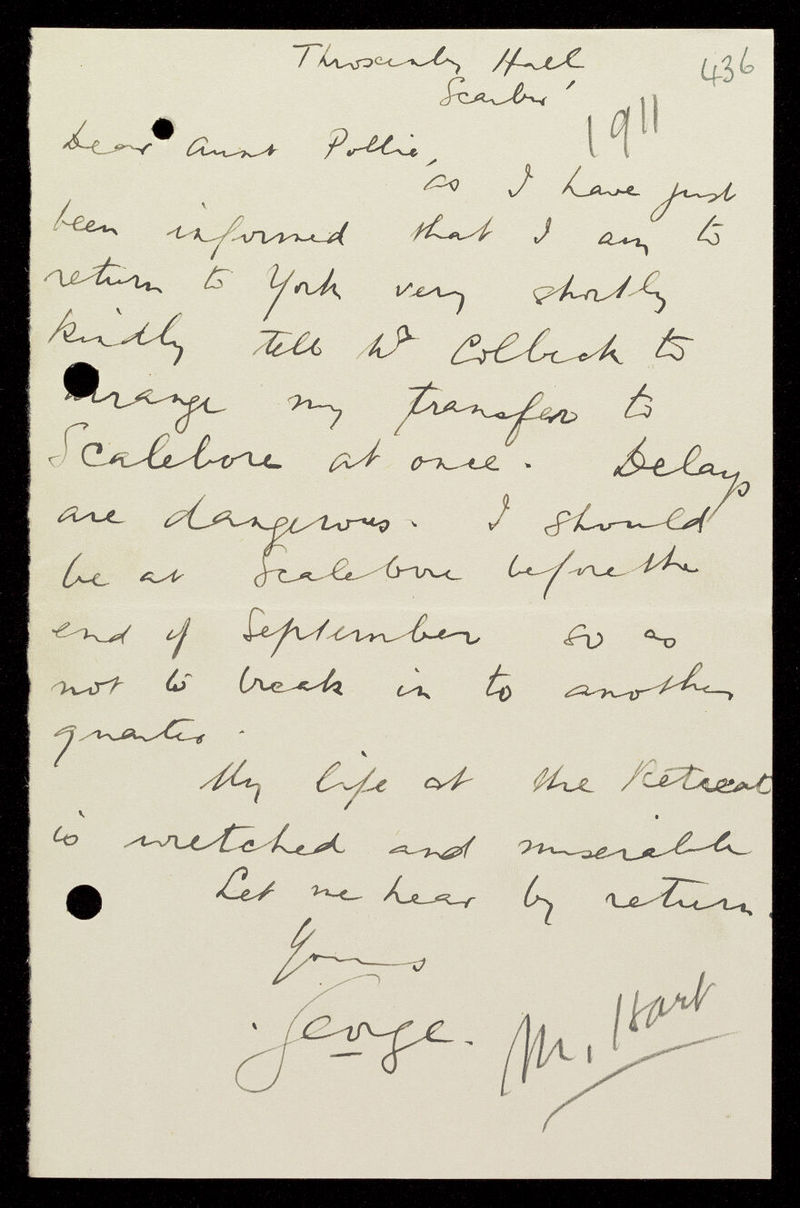 Throxenby Hall
436
Scarbro'
1911
Dear Aunt Pollie,
as I have just
been informed that I am to
return to York very shortly
kindly tell Dr Colbeck to
arrange my transfer to
Scalebore at once. Delays
are dangerous. I should
be at Scalebore before the
end of September so as
not to break in to another
quarter.
My life at the Retreat
is wretched and miserable
Let me hear by return.
Yours
George.
Mr. Hart